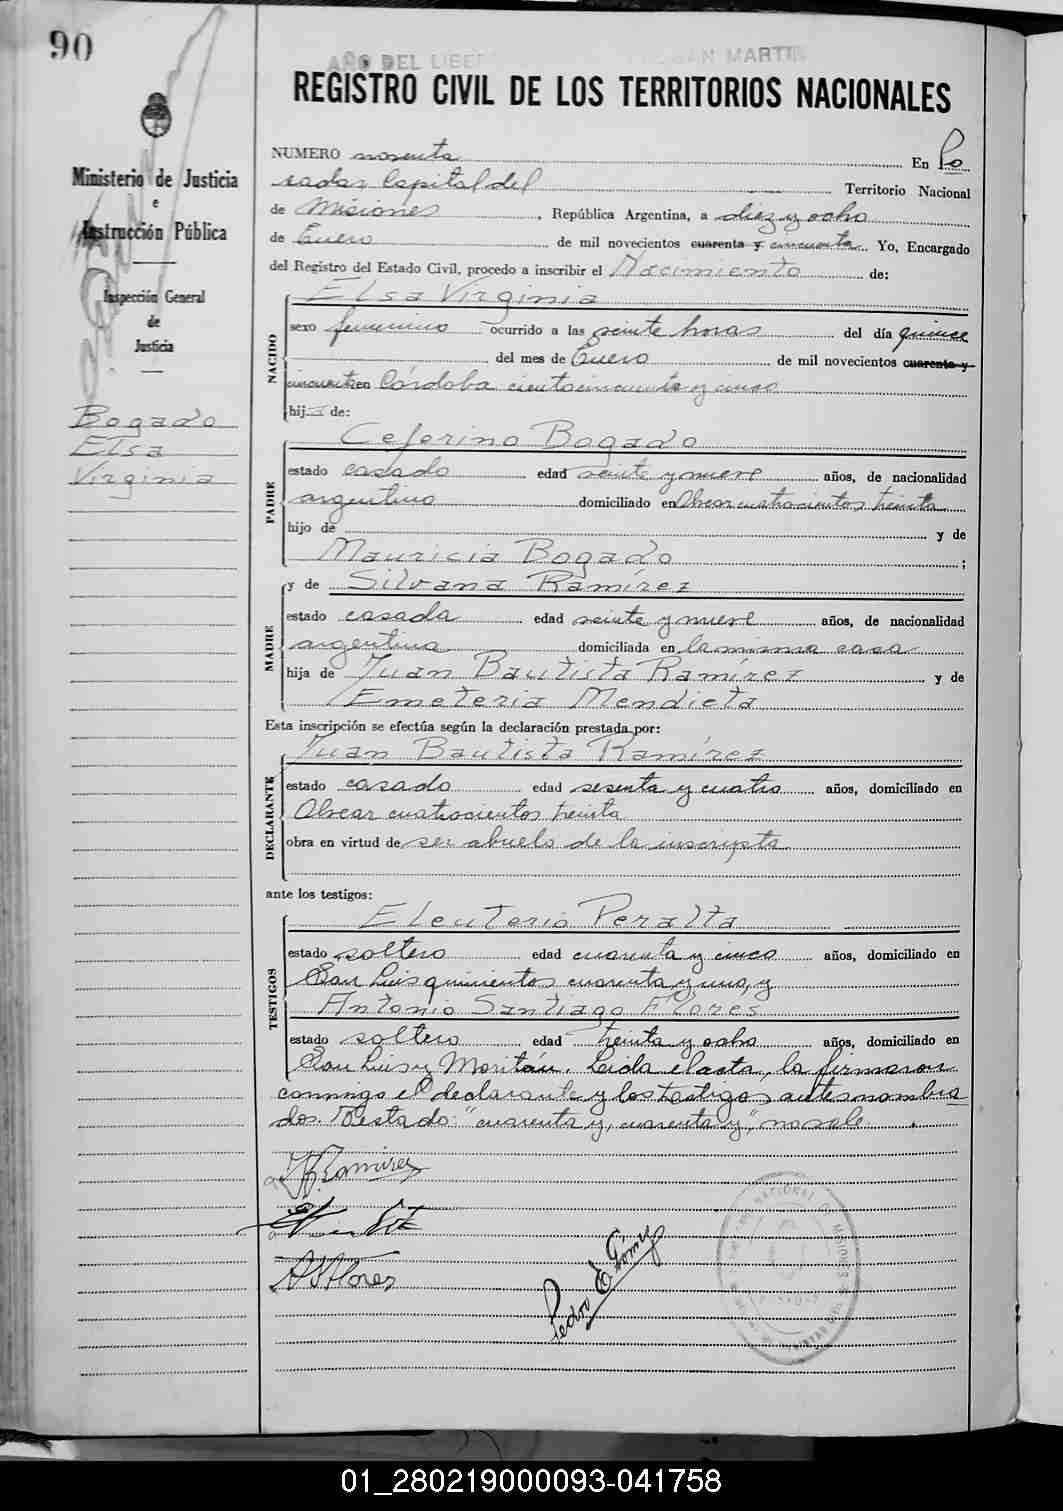 90
AÑO DEL LIBER SAN MARTIN
REGISTRO CIVIL DE LOS TERRITORIOS NACIONALES
Ministerio de Justicia
e
Instrucción Pública
Inspección General
de
Justicia
Bogado
Elsa
Virginia
NUMERO noventa En Po
sadas Capital del Territorio Nacional
de Misiones, República Argentina, a diez y ocho
de Enero de mil novecientos cuarenta y cincuenta Yo, Encargado
del Registro del Estado Civil, procedo a inscribir el Nacimiento de:
NACIDO
Elsa Virginia
sexo femenino ocurrido a las veinte horas del día quince
del mes de Enero de mil novecientos cuarenta y
cincuenta en Córdoba ciento cincuenta y cinco
hij de:
PADRE
Ceferino Bogado
estado casado edad veinte y nueve años, de nacionalidad
argentino domiciliado en Alvear cuatrocientos treinta
hijo de y de
Mauricia Bogado ;
MADRE
y de Silvana Ramírez
estado casada edad veinte y nueve años, de nacionalidad
argentina domiciliada en la misma casa
hija de Juan Bautista Ramírez y de
Emeteria Mendieta
Esta inscripción se efectúa según la declaración prestada por:
DECLARANTE
Juan Bautista Ramírez
estado casado edad sesenta y cuatro años, domiciliado en
Alvear cuatrocientos treinta
obra en virtud de ser abuelo de la inscripta
ante los testigos:
TESTIGOS
Eleuterio Peralta
estado soltero edad cuarenta y cinco años, domiciliado en
San Luis quinientos cuarenta y uno, y
Antonio Santiago Flores
estado soltero edad treinta y ocho años, domiciliado en
San Luis y Moritán. Leida el acta, la firmaron
conmigo el declarante y los testigos antes nombra
dos. Testado: "cuarenta y, cuarenta y", no vale.
J B Ramírez
A S Flores
Pedro E Gómez
01_280219000093-041758